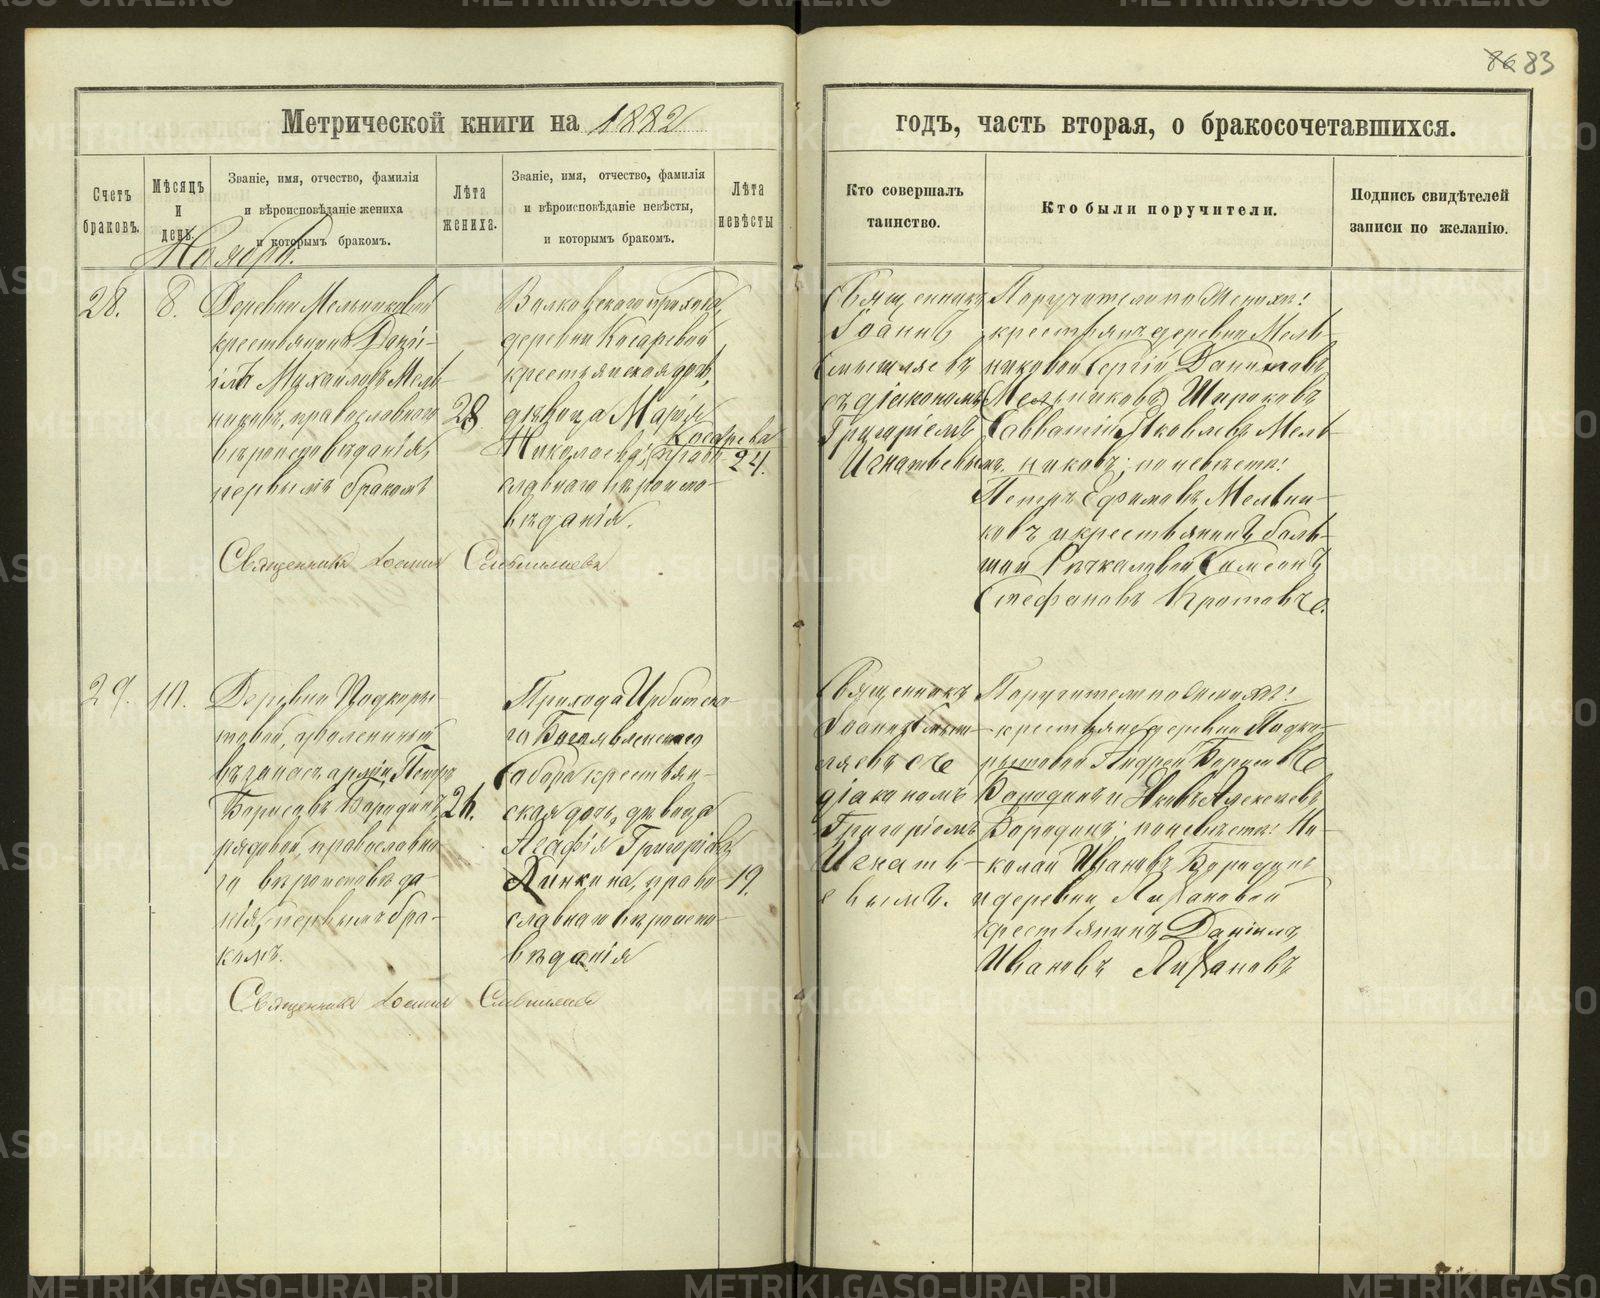 86 83
Метрической книги на 1882
годъ, часть вторая, о бракосочетавшихся.
Счетъ браковъ.
Мѣсяцъ и день.
Званіе, имя, отчество, фамилія и вѣроисповѣданіе жениха и которымъ бракомъ.
Лѣта жениха.
Званіе, имя, отчество, фамилія и вѣроисповѣданіе невѣсты, и которымъ бракомъ.
Лѣта невѣсты
Кто совершалъ таинство.
Кто были поручители.
Подпись свидѣтелей записи по желанію.
Ноябрь.
28.
8.
Деревни Мельниковой
крестьянинъ Дані-
илъ Михаиловъ Мель-
никовъ, православнаго
вѣроисповѣданія,
первымъ бракомъ
28
Волковскаго прихода,
деревни Косаревой
крестьянская дочь,
дѣвица Марія
Николаева Косарева
право-
славнаго вѣроиспо-
вѣданія.
24.
Священникъ Іоаннъ Смышляевъ
Священникъ
Іоаннъ
Смышляевъ
съ діакономъ
Григоріемъ
Игнатьевымъ
Поручители по женихѣ:
крестьяне деревни Мель-
никовой Сергій Даниловъ
Мельниковъ
Савватій Яковлевъ Мель-
никовъ; по невѣстѣ:
Петръ Ефимовъ Мельни-
ковъ и крестьянинъ боль-
шой Речкаловой Симеонъ
Стефановъ Кротовъ.
29.
10.
Деревни Подкоры-
товой, уволенный
въ запасъ арміи Петръ
Борисовъ Бородинъ,
рядовой, православна-
го вѣроисповѣда-
нія, первымъ бра-
комъ.
26.
Прихода Ирбитска-
го Богоявленскаго
собора крестьян-
ская дочь, дѣвица
Агафія Григоріева
Хинкина, право-
славнаго вѣроиспо-
вѣданія
19.
Священникъ Іоаннъ Смышляевъ
Священникъ
Іоаннъ Смыш-
ляевъ съ
діакономъ
Григоріемъ
Игнать-
евымъ.
Поручители по женихѣ:
крестьяне деревни Подко-
рытовой Андрей Борисовъ
Бородинъ и Яковъ Алексѣевъ
Бородинъ; по невѣстѣ: Ни-
колай Ивановъ Бородинъ
и деревни Лихановой
крестьянинъ Даніилъ
Ивановъ Лихановъ
METRIKI.GASO-URAL.RU